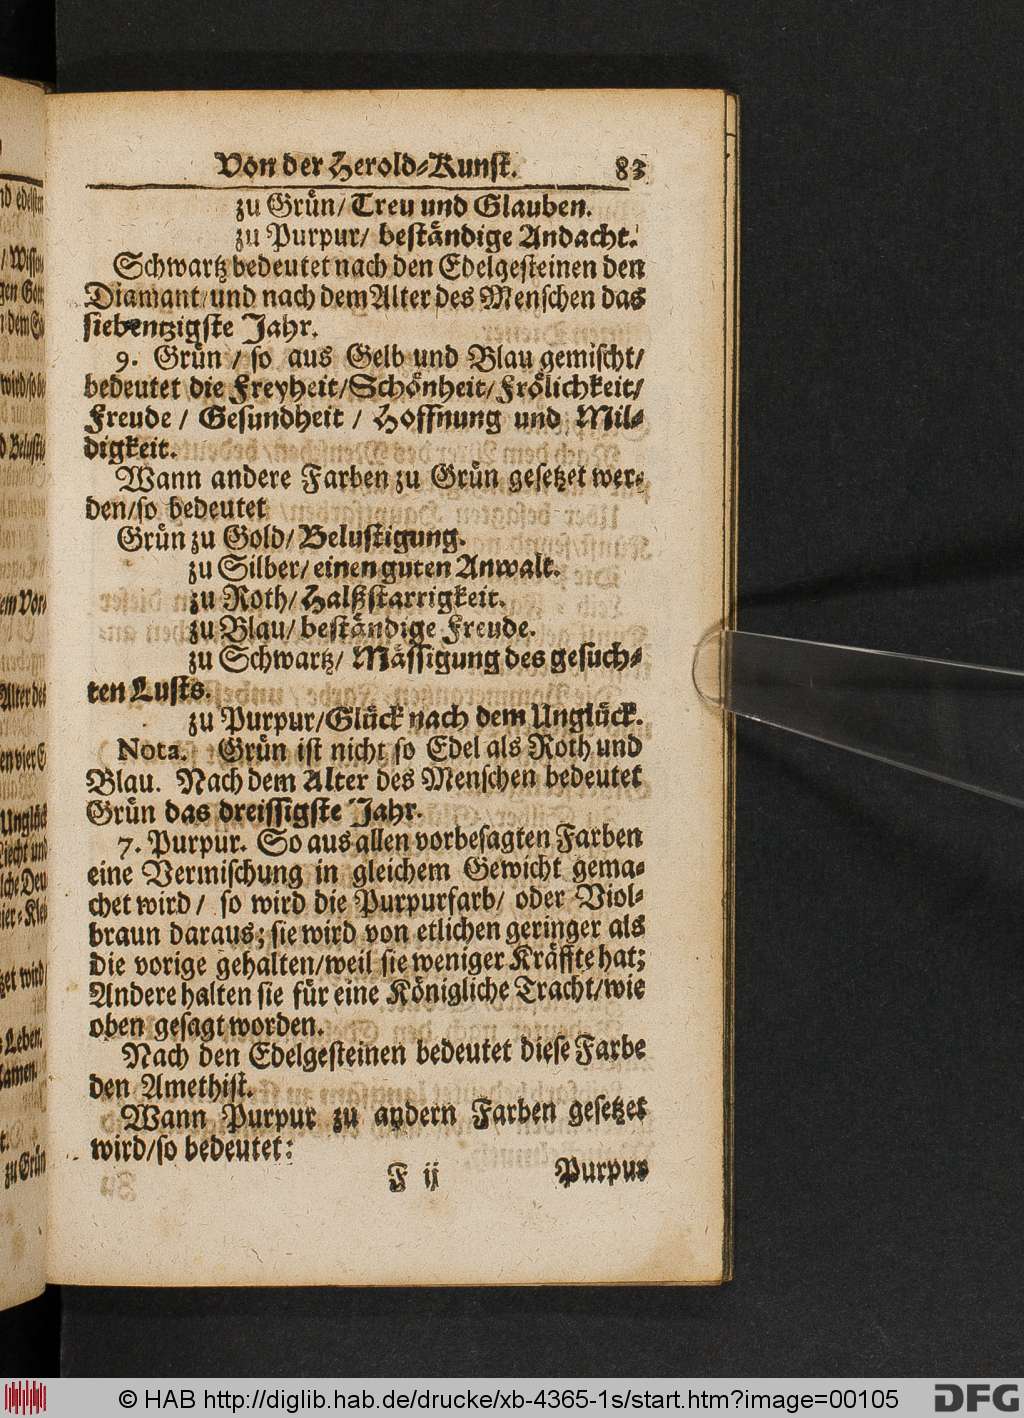 Von der Herold-Kunst. 83
zu Grün/ Treu und Glauben.
zu Purpur/ beständige Andacht.
Schwartz bedeutet nach den Edelgesteinen den
Diamant/ und nach dem Alter des Menschen das
siebentzigste Jahr.
9. Grün / so aus Gelb und Blau gemischt/
bedeutet die Freyheit/ Schönheit/ Frölichkeit/
Freude / Gesundheit / Hoffnung und Mil-
digkeit.
Wann andere Farben zu Grün gesetzet wer-
den/so bedeutet
Grün zu Gold/ Belustigung.
zu Silber/ einen guten Anwalt.
zu Roth/ Halßstarrigkeit.
zu Blau/ beständige Freude.
zu Schwartz/ Mässigung des gesuch-
ten Lusts.
zu Purpur/Glück nach dem Unglück.
Nota. Grün ist nicht so Edel als Roth und
Blau. Nach dem Alter des Menschen bedeutet
Grün das dreissigste Jahr.
7. Purpur. So aus allen vorbesagten Farben
eine Vermischung in gleichem Gewicht gema-
chet wird/ so wird die Purpurfarb/ oder Viol-
braun daraus; sie wird von etlichen geringer als
die vorige gehalten/weil sie weniger Kräffte hat;
Andere halten sie für eine Königliche Tracht/wie
oben gesagt worden.
Nach den Edelgesteinen bedeutet diese Farbe
den Amethist.
Wann Purpur zu andern Farben gesetzet
wird/so bedeutet:
F ij Purpur
© HAB http://diglib.hab.de/drucke/xb-4365-1s/start.htm?image=00105
DFG